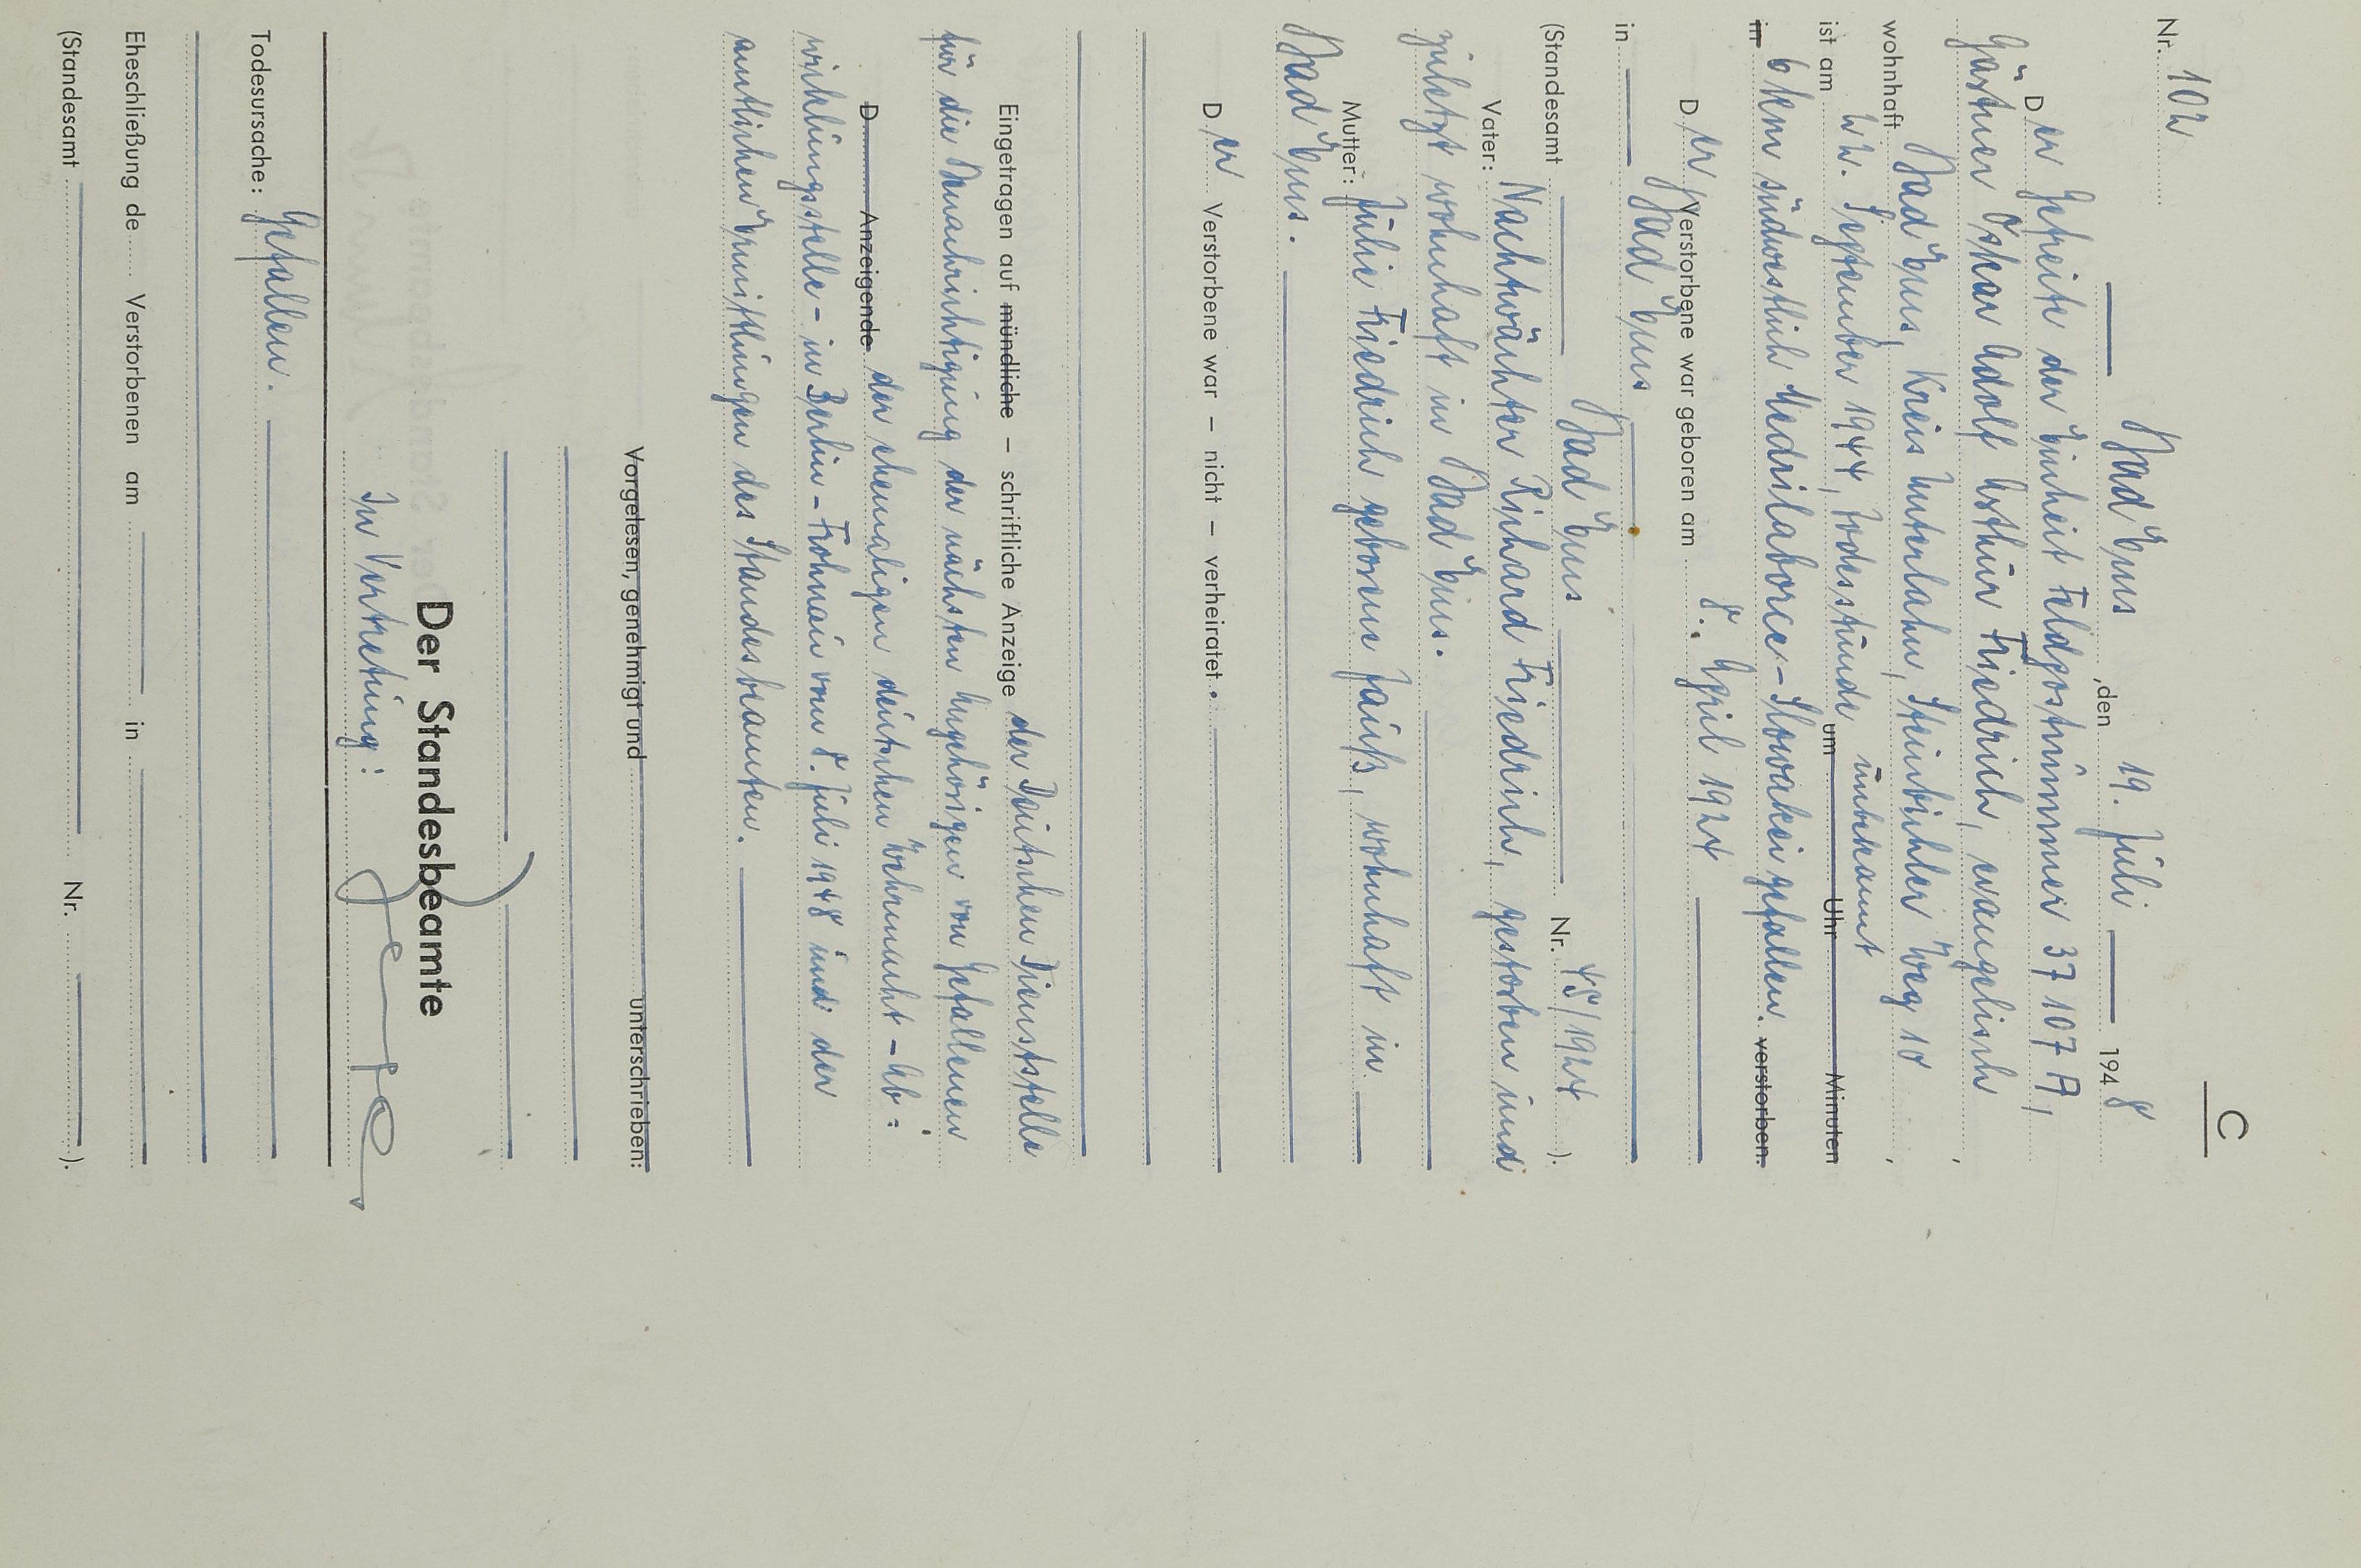 C
Nr. 102
Bad Ems, den 19. Juli 1948
Der Gefreite der Einheit Feldpostnummer 37 107 A,
Gärtner Oskar Adolf Arthur Friedrich, evangelisch,
wohnhaft Bad Ems, Kreis Unterlahn, Steinbichler Weg 10,
ist am 22. September 1944, Todesstunde unbekannt um Uhr Minuten
in 6 km südwestlich Medzilaborce-Slowakei gefallen. verstorben.
Der Verstorbene war geboren am 8. April 1924
in Bad Ems
(Standesamt Bad Ems Nr. 45/1924).
Vater: Nachtwächter Richard Friedrich, gestorben und
zuletzt wohnhaft in Bad Ems.
Mutter: Julie Friedrich geborene Fauß, wohnhaft in
Bad Ems.
Der Verstorbene war – nicht – verheiratet.
Eingetragen auf mündliche – schriftliche Anzeige der Deutschen Dienststelle
für die Benachrichtigung der nächsten Angehörigen von Gefallenen
D Anzeigende der ehemaligen deutschen Wehrmacht - Ab=
wicklungsstelle - in Berlin - Frohnau vom 8. Juli 1948 und der
amtlichen Ermittlungen des Standesbeamten.
Vorgelesen, genehmigt und unterschrieben:
Der Standesbeamte
In Vertretung:
Todesursache: Gefallen.
Eheschließung de Verstorbenen am in
(Standesamt Nr. ).